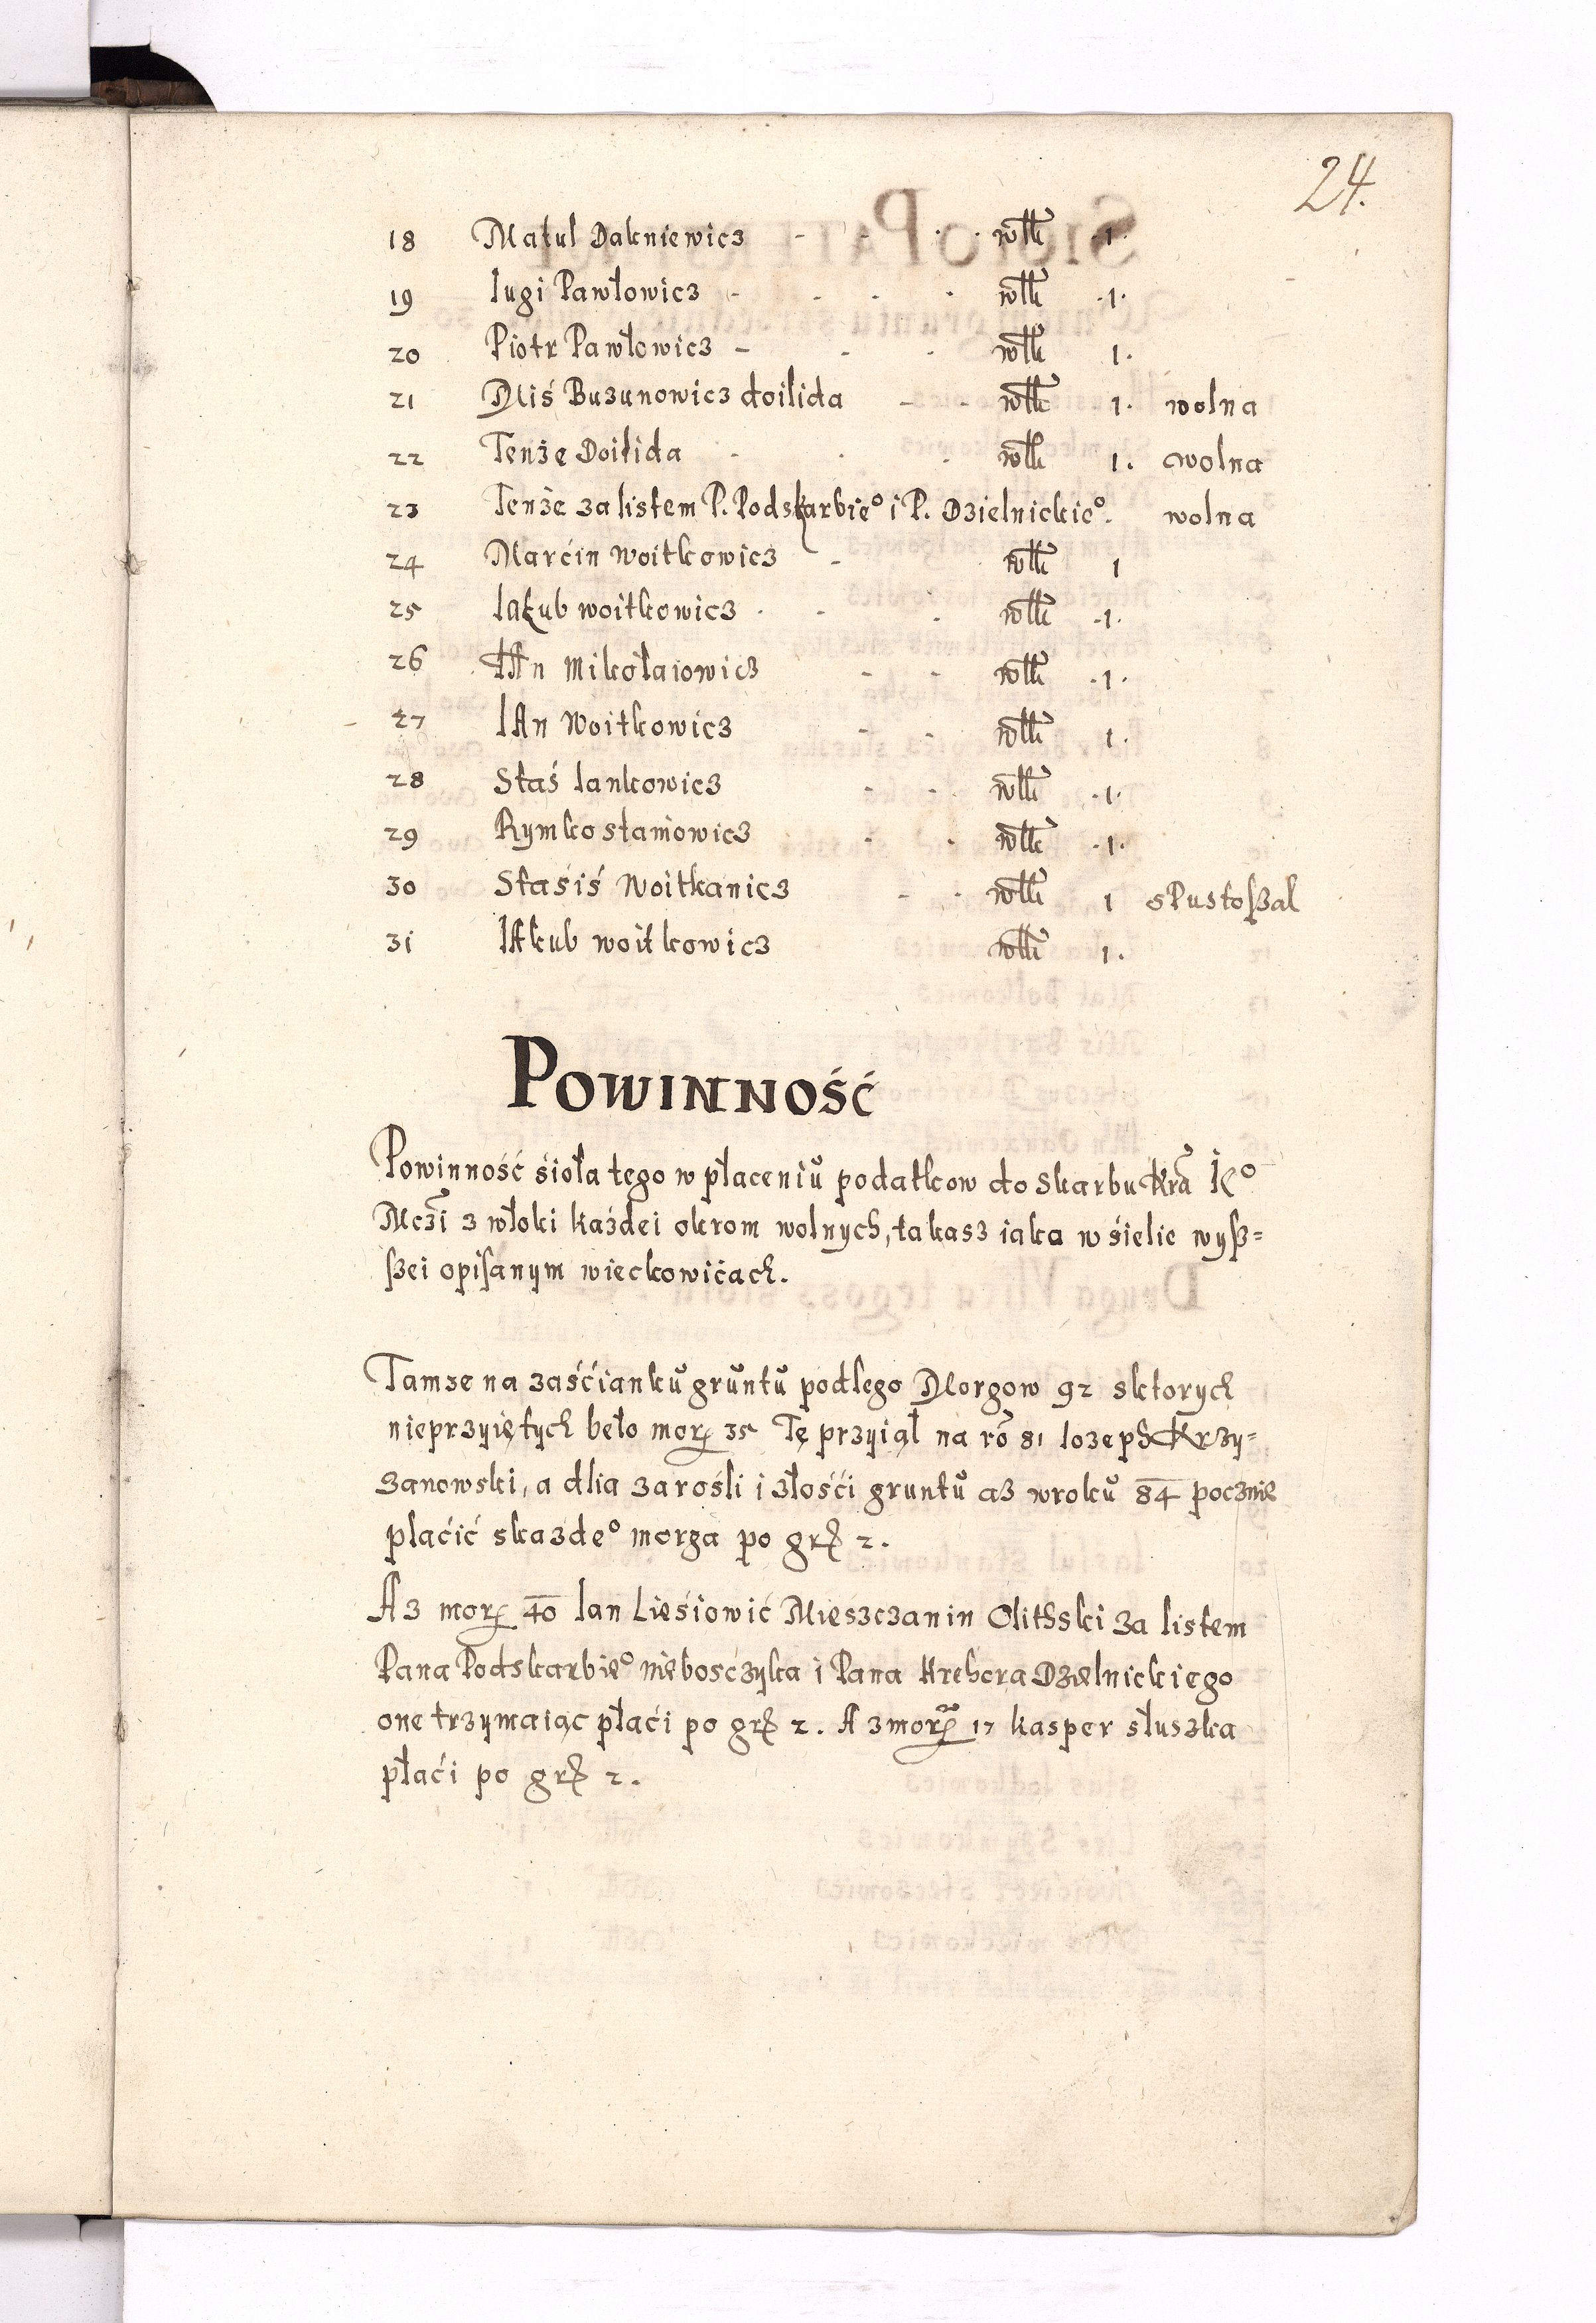 24.
18 Matul Dakniewicz - - . . włk .1.
19 Iugi Pawłowicz - - - . włk .1.
20 Piotr Pawłowicz - - - włk 1.
21 Miś Buzunowicz doilida - - włk 1. wolna
22 Tenże Doilida - . - włk 1. wolna
23 Tenże za listem P. Podskarbie° i P. Dzielnickie°. wolna
24 Marćin Woitkowicz - włk 1
25 Iakub woitkowicz . - - włk .1.
26 IAn Mikołaiowicz - - włk .1.
27 IAn Woitkowicz - - włk 1.
28 Staś Iankowicz - - włk .1.
29 Rymko staniowicz - . włk .1.
30 Staśiś Woitkanicz - . włk 1 sPustoßał
31 IAkub woitkowicz włk 1.
Powinność
Powinność śioła tego w płaceniŭ podatkow do Skarbu Kra IE°
Mczi z włoki każdei okrom wolnych, takasz iaka w śielie wyß=
ßei opiſanym wieckowićach.
Tamze na zaśćiankŭ grŭntŭ podłego Morgow 92 sktorych
nieprzyiętych beło morg 35 Tę przyiął na ro 81 Iozeph Krzy=
zanowski, a dlia zarośli i złośći gruntŭ aż wrokŭ 84 pocznie
płaćić skazde° morga po grß 2.
Az morg 40 Ian Lieśiowić Mieszczanin Olithski za listem
Pana Podskarbie° nieboszczyka i Pana Hrehora Dzielnickiego
one trzymaiąc płaći po grß 2. A z morg 17 kasper słuszka
płaći po grß 2.